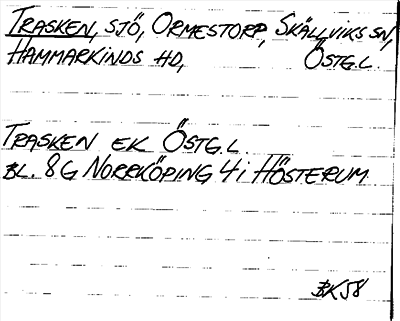 TRASKEN, SJÖ, ORMESTORP, SKÄLLVIKS SN,
HAMMARKINDS HD, ÖSTG.L.
TRASKEN EK ÖSTG.L.
BL. 8G NORRKÖPING 4i HÖSTERUM
BK58